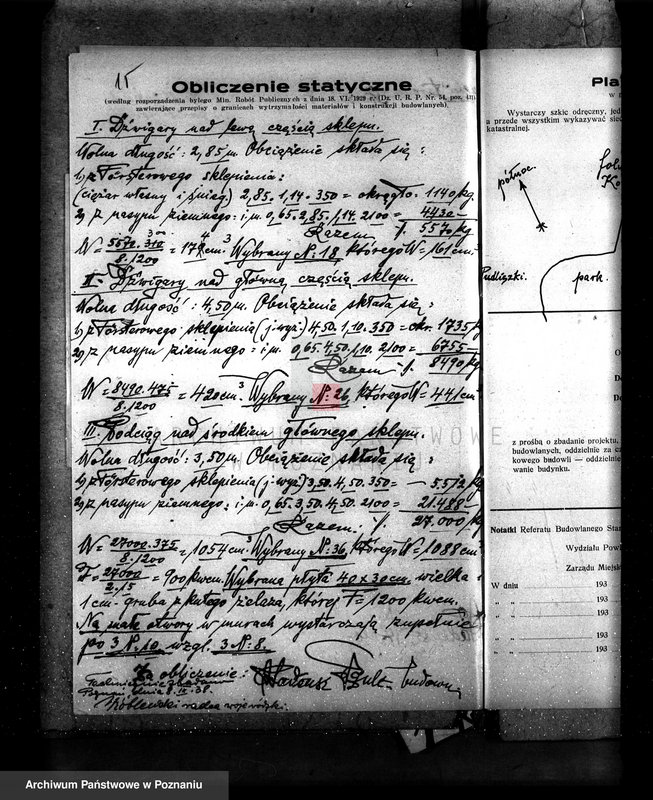 15
Obliczenie statyczne
(według rozporządzenia byłego Min. Robót Publicznych z dnia 18. VI. 1929 r. (Dz. U. R. P. Nr. 54, poz. 431)
zawierające przepisy o granicach wytrzymałości materiałów i konstrukcji budowlanych).
I. Dźwigary nad lewą częścią sklepu.
Wolna długość: 2,85 m. Obciążenie składa się:
1) z Försterowego sklepienia:
(ciężar własny i śnieg.) 2,85. 1,14. 350 = okrągło. 1140 kg.
2) z nasypu ziemnego: i.m. 0,65. 2,85. 1,14. 2100 =
Razem 5570 kg
8.1200 Wybrany N: 18 którego W = 161 cm³
II. Dźwigary nad główną częścią sklepu.
Wolna długość: 4,50 m. Obciążenie składa się:
1) z Försterowego sklepienia (j. wyż.) 4,50. 1,10. 350 = okr. 1735 k
2) z nasypu ziemnego: i.m. 0,65. 4,50. 1,10. 2100 = 6755
Razem 8490 kg
W = 8490. 475
8.1200 = 420 cm³ Wybrany N: 26 którego W = 441 cm³
III. Podciąg nad środkiem głównego sklepu.
Wolna długość: 3,50 m. Obciążenie składa się:
1) z Försterowego sklepienia (j. wyż.) 3,50. 4,50. 350 = 5.572 kg
2) z nasypu ziemnego: i.m. 0,65. 3,50. 4,50. 2100 = 21.488
Razem: 27.000 kg
W = 27000. 375
8.1200 = 1054 cm³ Wybrany N: 36, którego W = 1088 cm³
F = 27000
2,15 = 900 kwcm. Wybrana płyta 40 x 30 cm. wielka i
1 cm. gruba z kutego żelaza, której F = 1200 kwcm.
Na małe otwory w murach wystarczają zupełnie
po 3 N. 10 wzgl. 3 N: 8.
Za obliczenie:
Tadeusz budown.
Technicznie zbadano
Poznań, dnia
radca wojewódzki.
Pla
Wystarczy szkic odręczny, jed
a przede wszystkim wykazywać sie
katastralnej.
północ.
Pudliszki.
park.
O
Do
Do
z prośbą o zbadanie projektu,
budowlanych, oddzielnie za cz
kowego budowli — oddzielnie
wanie budynku.
Notatki Referatu Budowlanego Star
Wydziału Pow
Zarządu Miejsk
W dniu 193
„ „ 193
„ „ 193
„ „ 193
„ „ 193
Archiwum Państwowe w Poznaniu